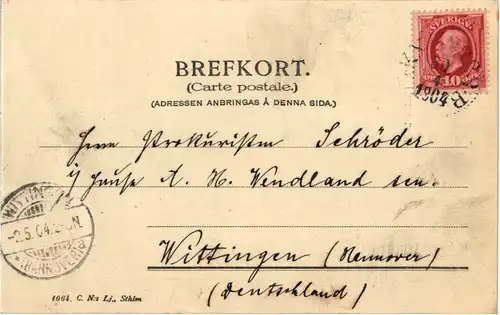 SVERIGE
10
1904
P.R
BREFKORT.
(Carte postale.)
(ADRESSEN ANBRINGAS Å DENNA SIDA.)
Herrn Prokuristen Schröder
i/ Hause A. H. Wendland sen.
Wittingen (Hannover)
(Deutschland)
WITTING
-2.5.04.
1064. C. N:s Lj., Sthlm.